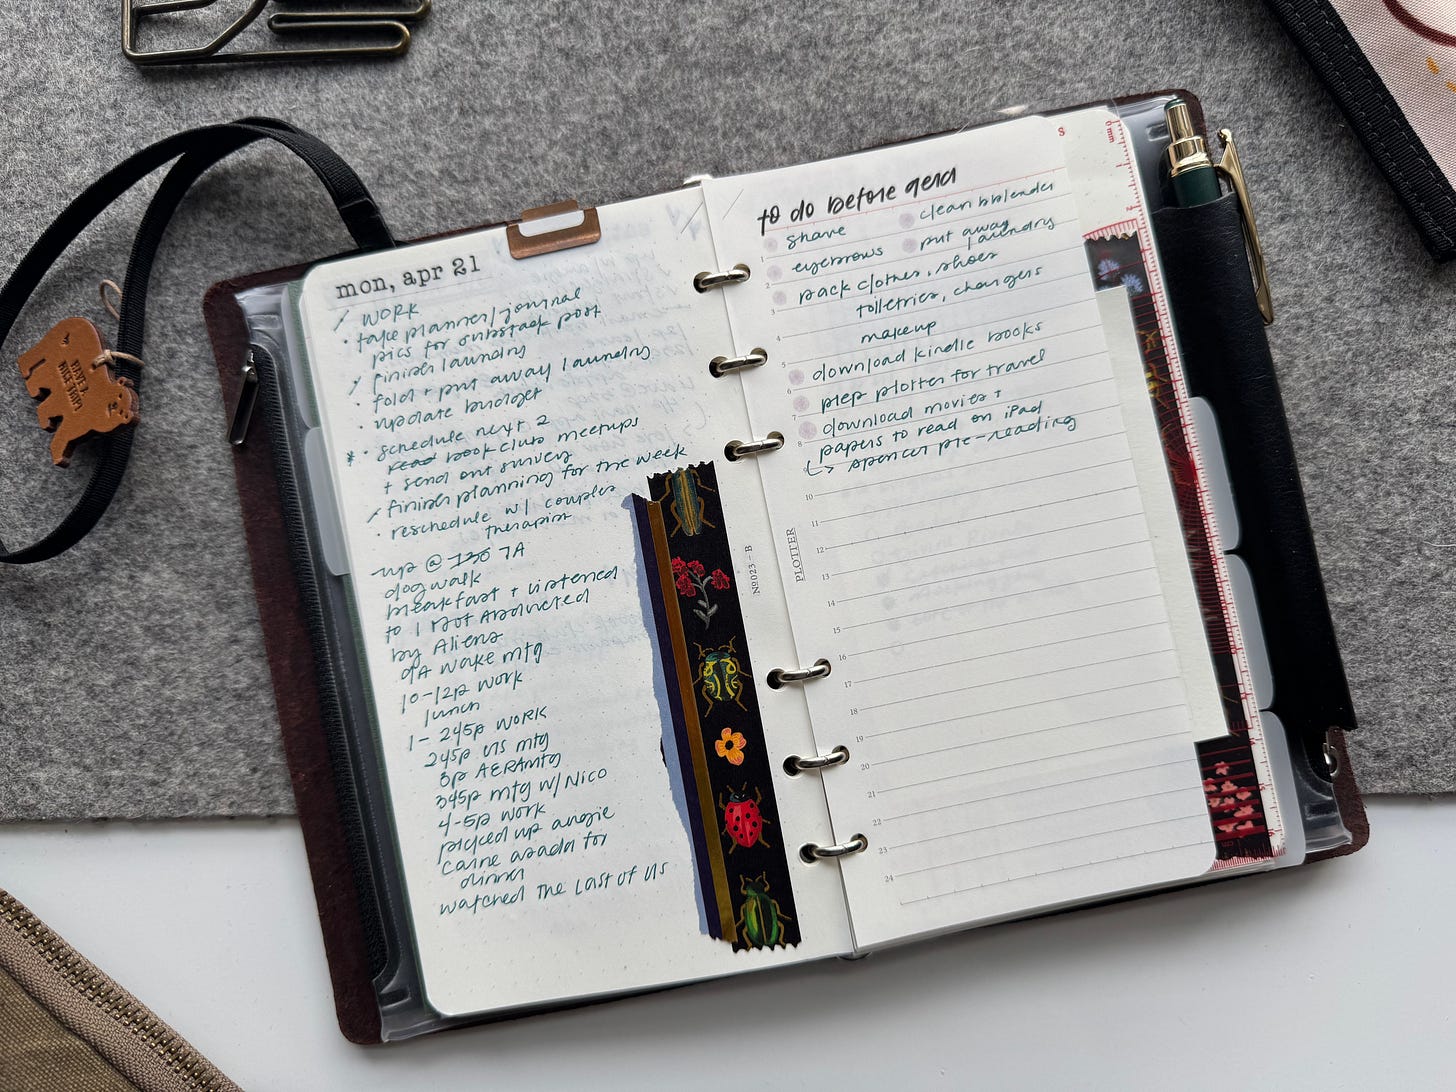 mon, apr 21
/ WORK
• take planner/journal
pics for substack post
/ finish laundry
• fold + put away laundry
• update budget
* • schedule next 2
read book club meetups
+ send out survey
/ finish planning for the week
• reschedule w/ couples
therapist
- up @ 730 7A
dog walk
breakfast + listened
to I Not Abducted
by Aliens
9A Wake mtg
10-12p work
lunch
1-245p WORK
245p US mtg
3p AERA mtg
345p mtg w/ Nico
4-5p work
picked up angie
carne asada for
dinner
watched The Last of Us
NEVER
to do before aera
shave
clean blender
eyebrows
put away
laundry
pack clothes, shoes
toiletries, chargers
makeup
download kindle books
prep plotter for travel
download movies +
papers to read on iPad
↳ spencer pre-reading
1
2
3
4
5
6
7
8
10
11
12
13
14
15
16
17
18
19
20
21
22
23
24
PLOTTER
№023-B
S
0mm
cm